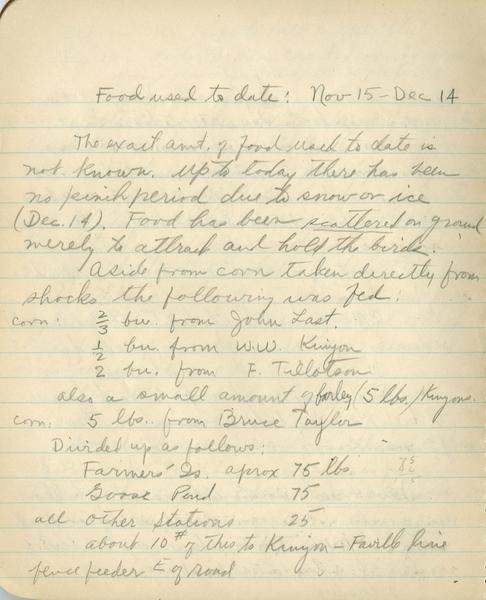 Food used to date: Nov 15 - Dec 14
The exact amt. of food used to date is
not known. Up to today there has been
no pinch period due to snow or ice
(Dec. 14). Food has been scattered on ground
merely to attract and hold the birds.
Aside from corn taken directly from
shocks the following was fed:
corn: 2/3 bu. from John Last.
1/2 bu. from W.W. Kinyon
2 bu. from F. Tillotson
also a small amount of barley (5 lbs.) Kinyons.
corn: 5 lbs. from Bruce Taylor
Divided up as follows:
Farmers' Is. aprox 75 lbs.
Goose Pond 75
all other stations 25
about 10# of this to Kinyon - Faville line
fence feeder E of road